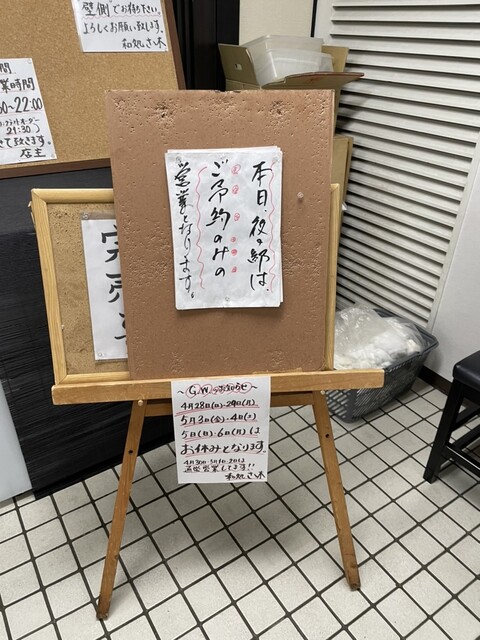 壁側でお待ち下さい。
よろしくお願い致します。
和処さゝ木
業時間
0〜22:00
ラストオーダー
21:30
せて致きます。
店主
本日、夜の部は、
ご予約のみの
営業となります。
完売
〜GWのお知らせ〜
4月28日(日)・29日(月)
5月3日(金)・4日(土)
5日(日)・6日(月)は
お休みとなります。
4月30日・5月1日・2日は
通常営業してます!!
和処さゝ木